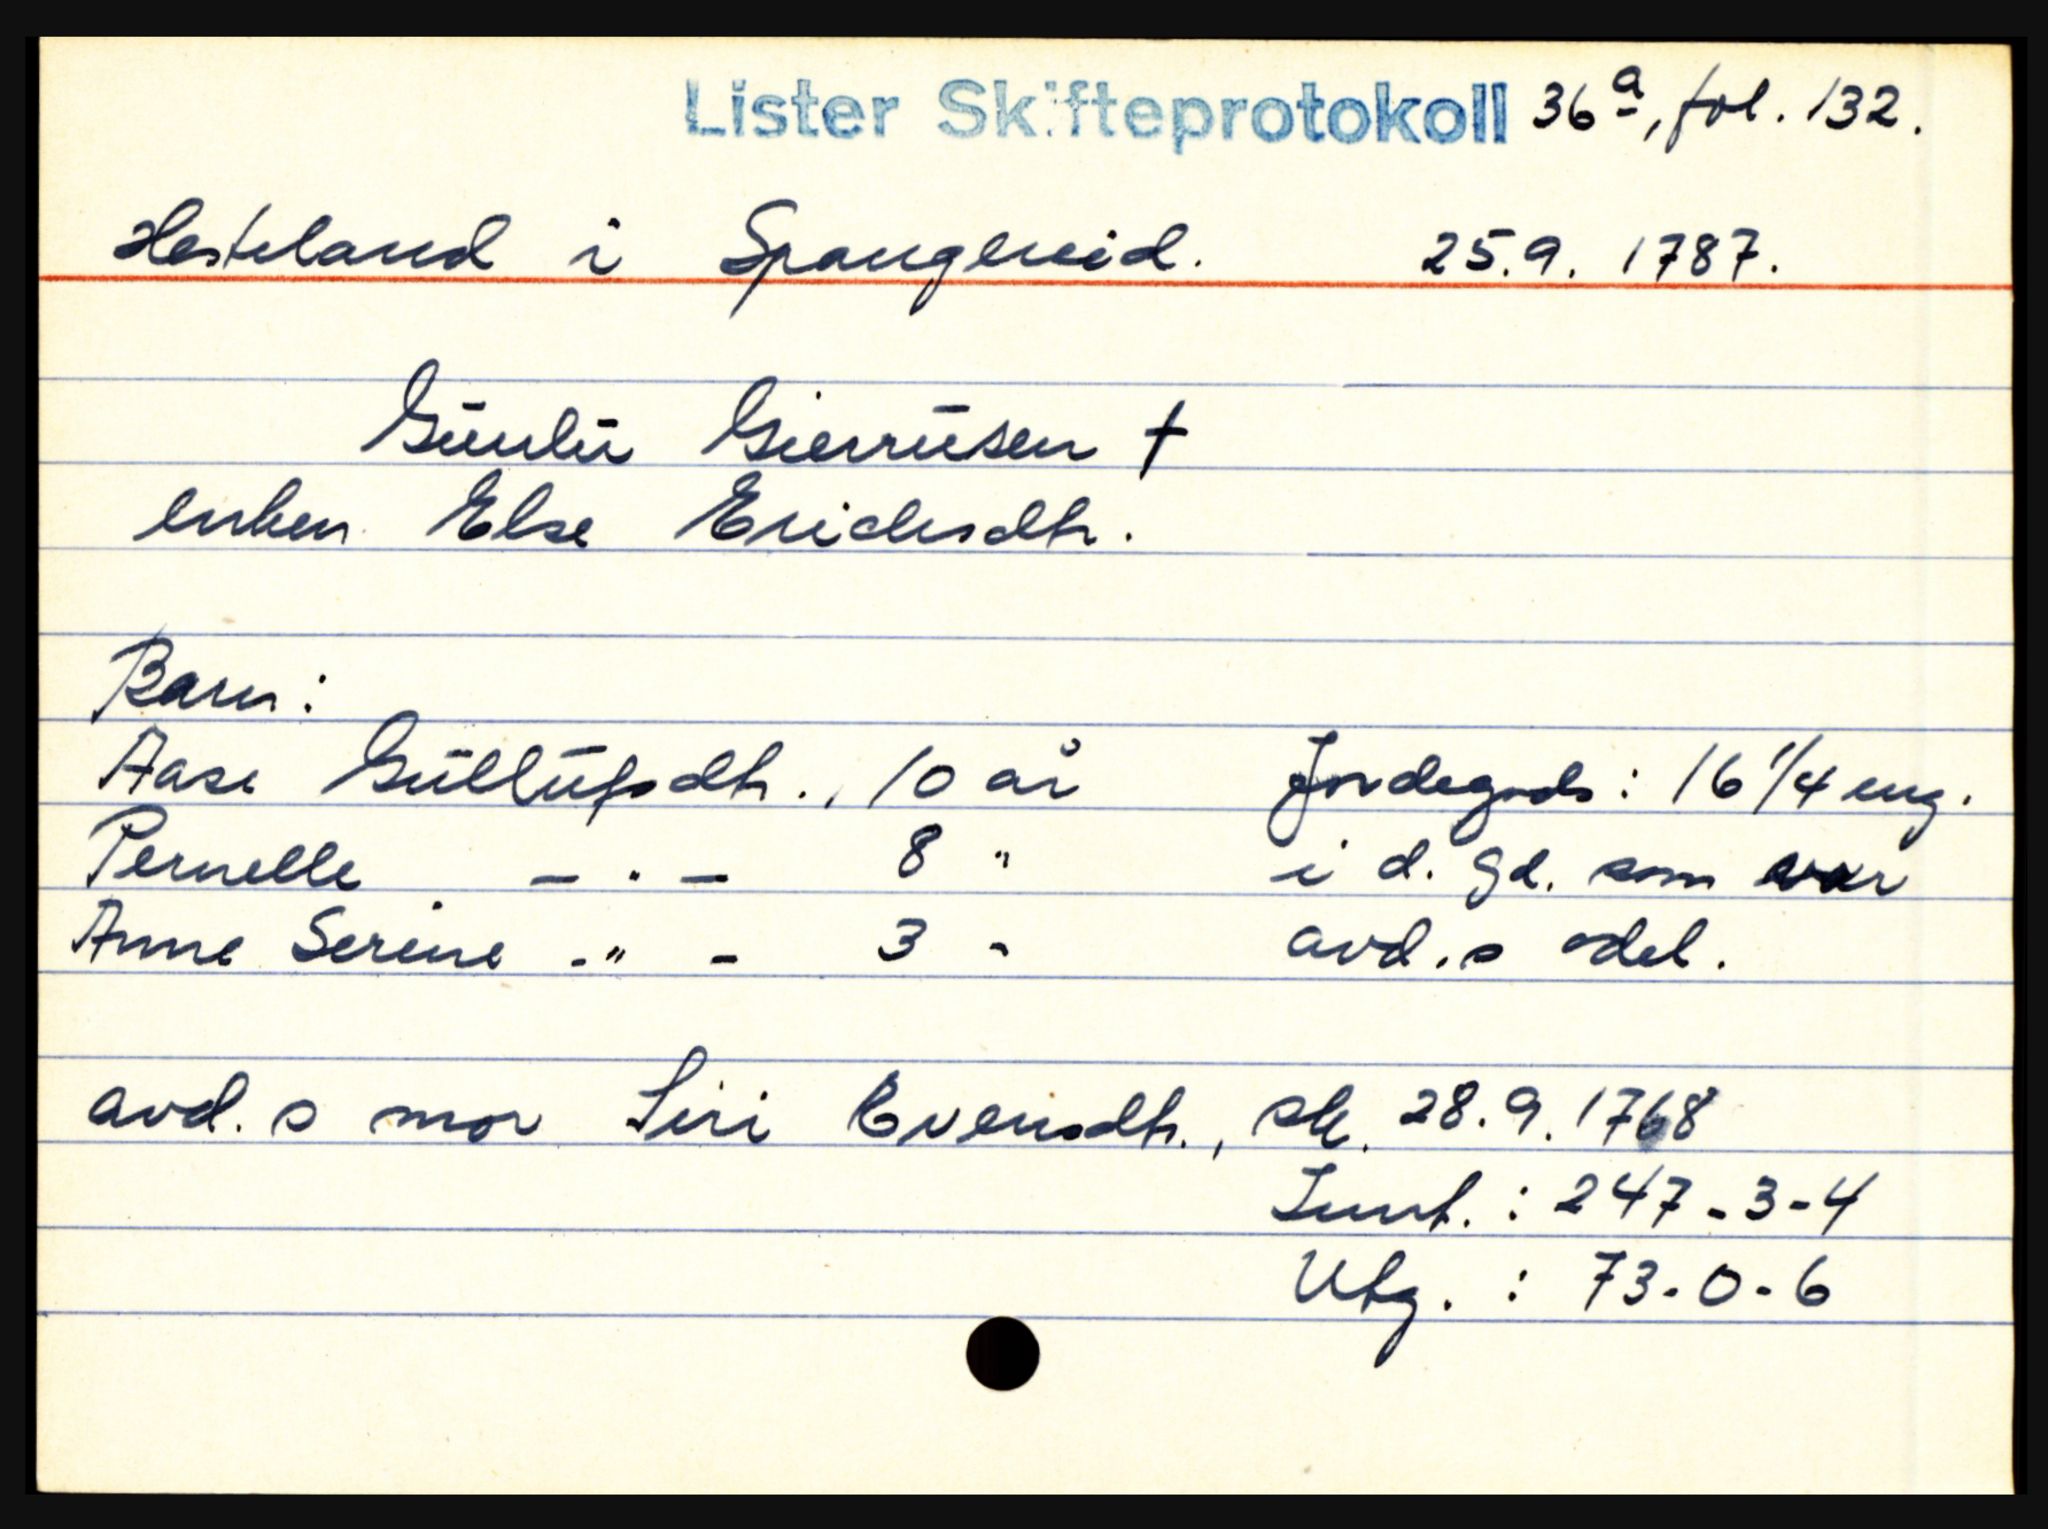 Lister Skifteprotokoll 36a, fol. 132.
Hesteland i Spangereid. 25.9. 1787.
Gunlu Gierrusen †
enken Else Erichsdtr.
Barn:
Aase Gullufsdtr., 10 år Jordegods: 16 1/4 eng.
Pernelle — " — 8 " i d. gd. som var
Anne Serine - " - 3 " avd.s odel.
avd.s mor Siri Evensdtr., sk. 28.9.1768
Innt. : 247-3-4
Utg. : 73-0-6